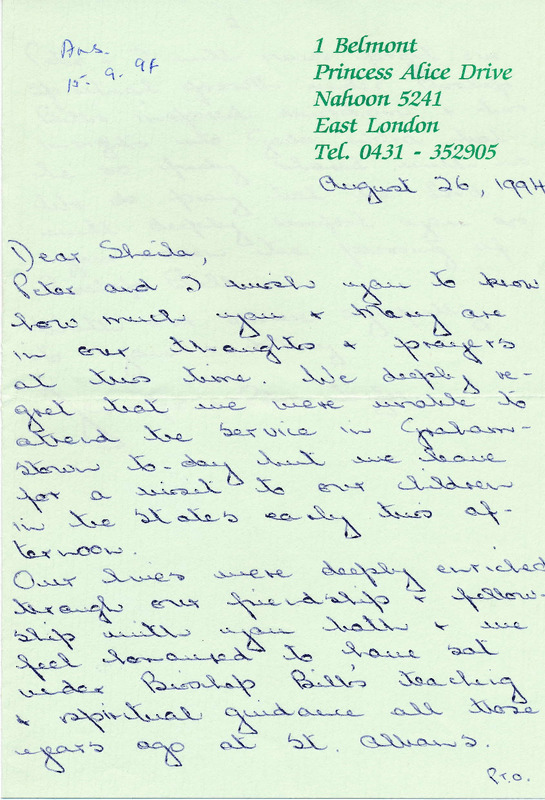 Ans.
15-9-94
1 Belmont
Princess Alice Drive
Nahoon 5241
East London
Tel. 0431 - 352905
August 26, 1994
Dear Sheila,
Peter and I wish you to know
how much you & Mary are
in our thoughts & prayers
at this time. We deeply re-
gret that we were unable to
attend the service in Graham-
stown to-day but we leave
for a visit to our children
in the States early this af-
ternoon.
Our lives were deeply enriched
through our friendship & fellow-
ship with you both & we
feel honoured to have sat
under Bishop Bill's teaching
& spiritual guidance all those
years ago at St. Albans.
P.T.O.